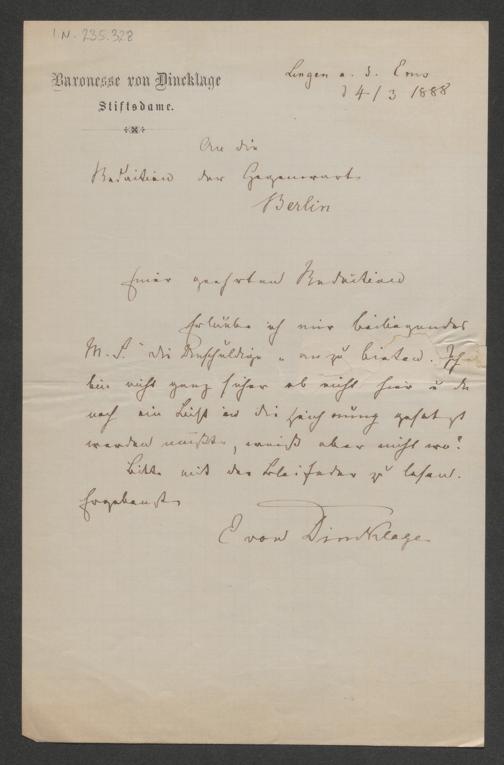 I.N. 235.328
Baronesse von Dincklage
Stiftsdame.
Lingen a. d. Ems
d 4/3 1888
An die
Redaction der Gegenwart
Berlin
Einer geehrten Redaction
Erlaube ich mir beiliegendes
M. S. "die Unschuldige" an zu bieten. Ich
bin nicht ganz sicher ob nicht hier u da
noch ein Licht in die Zeichnung gesetzt
werden müßte, weiß aber nicht wo?
Bitte mit der Bleifeder zu lesen.
Ergebenst
E von Dincklage